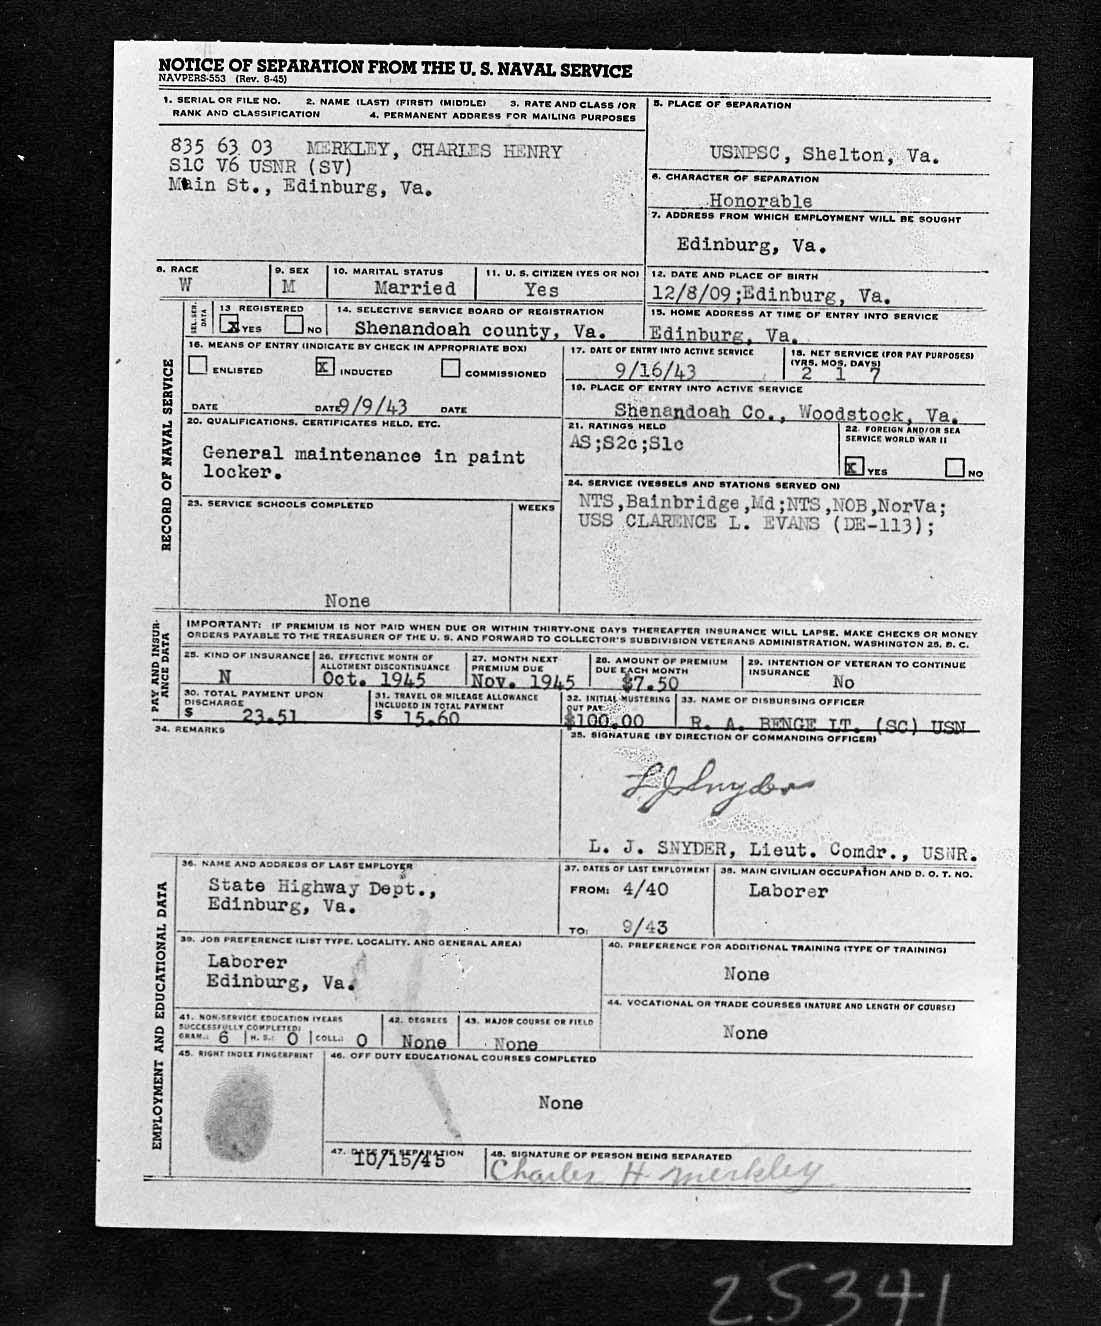 NOTICE OF SEPARATION FROM THE U. S. NAVAL SERVICE
NAVPERS-553 (Rev. 8-45)
1. SERIAL OR FILE NO. 2. NAME (LAST) (FIRST) (MIDDLE) 3. RATE AND CLASS /OR
RANK AND CLASSIFICATION 4. PERMANENT ADDRESS FOR MAILING PURPOSES
835 63 03 MERKLEY, CHARLES HENRY
S1C V6 USNR (SV)
Main St., Edinburg, Va.
5. PLACE OF SEPARATION
USNPSC, Shelton, Va.
6. CHARACTER OF SEPARATION
Honorable
7. ADDRESS FROM WHICH EMPLOYMENT WILL BE SOUGHT
Edinburg, Va.
8. RACE
W
9. SEX
M
10. MARITAL STATUS
Married
11. U. S. CITIZEN (YES OR NO)
Yes
12. DATE AND PLACE OF BIRTH
12/8/09;Edinburg, Va.
SEL. SER. DATA
13 REGISTERED
X YES NO
14. SELECTIVE SERVICE BOARD OF REGISTRATION
Shenandoah county, Va.
15. HOME ADDRESS AT TIME OF ENTRY INTO SERVICE
Edinburg, Va.
RECORD OF NAVAL SERVICE
16. MEANS OF ENTRY (INDICATE BY CHECK IN APPROPRIATE BOX)
ENLISTED X INDUCTED COMMISSIONED
DATE DATE 9/9/43 DATE
17. DATE OF ENTRY INTO ACTIVE SERVICE
9/16/43
18. NET SERVICE (FOR PAY PURPOSES)
(YRS. MOS. DAYS)
2 1 7
19. PLACE OF ENTRY INTO ACTIVE SERVICE
Shenandoah Co., Woodstock, Va.
20. QUALIFICATIONS, CERTIFICATES HELD, ETC.
General maintenance in paint
locker.
21. RATINGS HELD
AS;S2c;S1c
22. FOREIGN AND/OR SEA
SERVICE WORLD WAR II
X YES NO
23. SERVICE SCHOOLS COMPLETED WEEKS
None
24. SERVICE (VESSELS AND STATIONS SERVED ON)
NTS,Bainbridge,Md;NTS,NOB,NorVa;
USS CLARENCE L. EVANS (DE-113);
PAY AND INSUR-
ANCE DATA
IMPORTANT: IF PREMIUM IS NOT PAID WHEN DUE OR WITHIN THIRTY-ONE DAYS THEREAFTER INSURANCE WILL LAPSE. MAKE CHECKS OR MONEY
ORDERS PAYABLE TO THE TREASURER OF THE U. S. AND FORWARD TO COLLECTOR'S SUBDIVISION VETERANS ADMINISTRATION, WASHINGTON 25, D. C.
25. KIND OF INSURANCE
N
26. EFFECTIVE MONTH OF
ALLOTMENT DISCONTINUANCE
Oct. 1945
27. MONTH NEXT
PREMIUM DUE
Nov. 1945
28. AMOUNT OF PREMIUM
DUE EACH MONTH
$7.50
29. INTENTION OF VETERAN TO CONTINUE
INSURANCE
No
30. TOTAL PAYMENT UPON
DISCHARGE
$ 23.51
31. TRAVEL OR MILEAGE ALLOWANCE
INCLUDED IN TOTAL PAYMENT
$ 15.60
32. INITIAL MUSTERING
OUT PAY
$100.00
33. NAME OF DISBURSING OFFICER
R. A. BENGE LT. (SC) USN
34. REMARKS
35. SIGNATURE (BY DIRECTION OF COMMANDING OFFICER)
L J Snyder
L. J. SNYDER, Lieut. Comdr., USNR.
EMPLOYMENT AND EDUCATIONAL DATA
36. NAME AND ADDRESS OF LAST EMPLOYER
State Highway Dept.,
Edinburg, Va.
37. DATES OF LAST EMPLOYMENT
FROM: 4/40
TO: 9/43
38. MAIN CIVILIAN OCCUPATION AND D. O. T. NO.
Laborer
39. JOB PREFERENCE (LIST TYPE, LOCALITY, AND GENERAL AREA)
Laborer
Edinburg, Va.
40. PREFERENCE FOR ADDITIONAL TRAINING (TYPE OF TRAINING)
None
41. NON-SERVICE EDUCATION (YEARS
SUCCESSFULLY COMPLETED)
GRAM.: 6 H. S.: 0 COLL.: 0
42. DEGREES
None
43. MAJOR COURSE OR FIELD
None
44. VOCATIONAL OR TRADE COURSES (NATURE AND LENGTH OF COURSE)
None
45. RIGHT INDEX FINGERPRINT
46. OFF DUTY EDUCATIONAL COURSES COMPLETED
None
47. DATE OF SEPARATION
10/15/45
48. SIGNATURE OF PERSON BEING SEPARATED
Charles H Merkley
25341